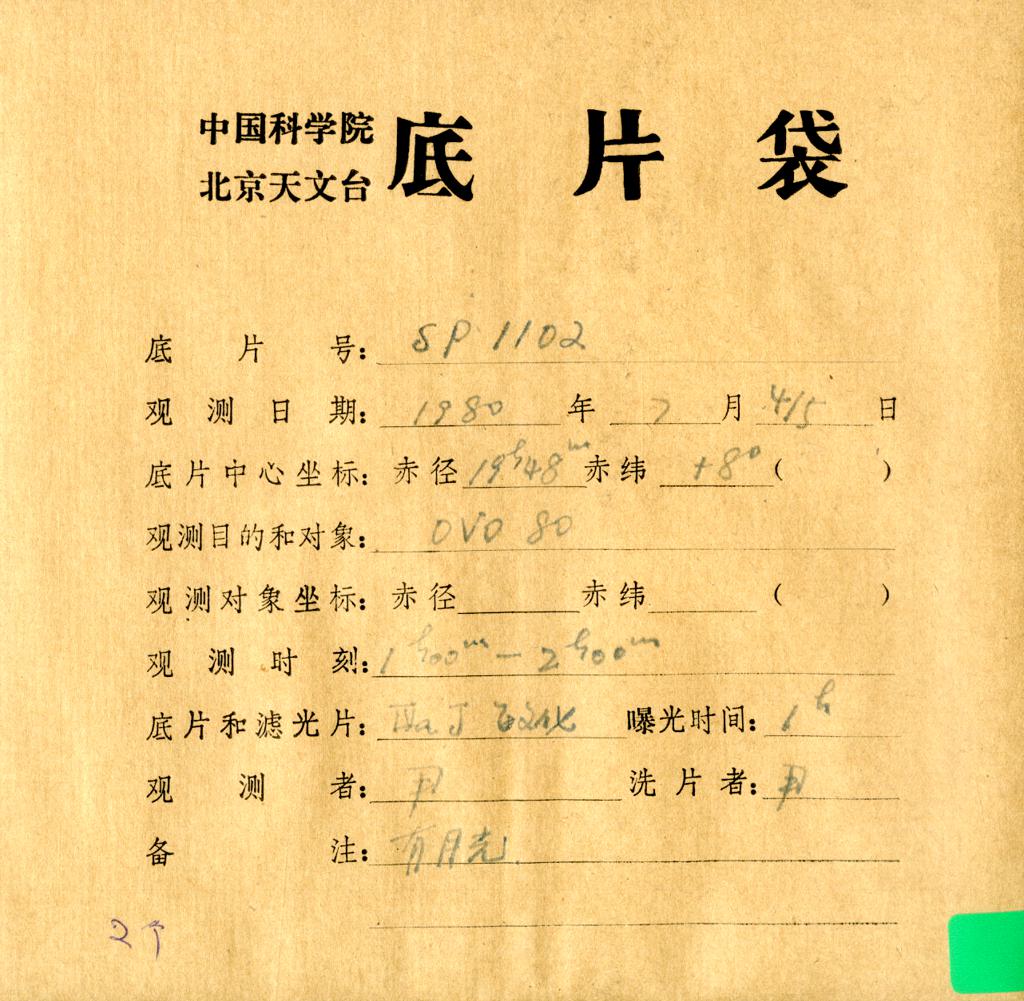 中国科学院
北京天文台
底片袋
底片号: SP 1102
观测日期: 1980 年 7 月 4/5 日
底片中心坐标: 赤径 19h48m 赤纬 +8° ( )
观测目的和对象: OVO 80
观测对象坐标: 赤径 赤纬 ( )
观测时刻: 1h00m — 2h00m
底片和滤光片: IIaJ 敏化 曝光时间: 1h
观测者: 尹 洗片者: 尹
备注: 有月光.
2个